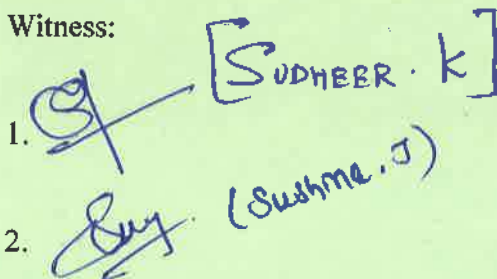 Witness:
1. [SUDHEER. K]
2. (Sushma. J)